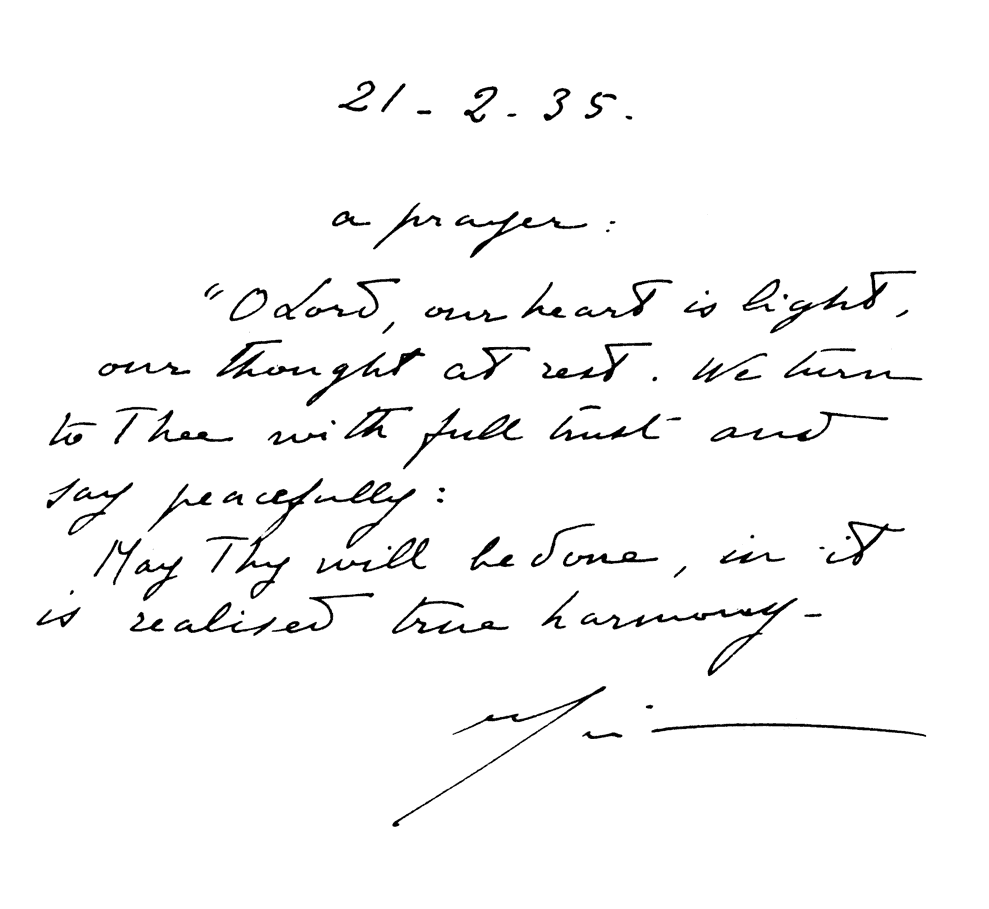 21-2-35.
a prayer:
"O Lord, our heart is light,
our thought at rest. We turn
to Thee with full trust and
say peacefully:
May Thy will be done, in it
is realised true harmony-